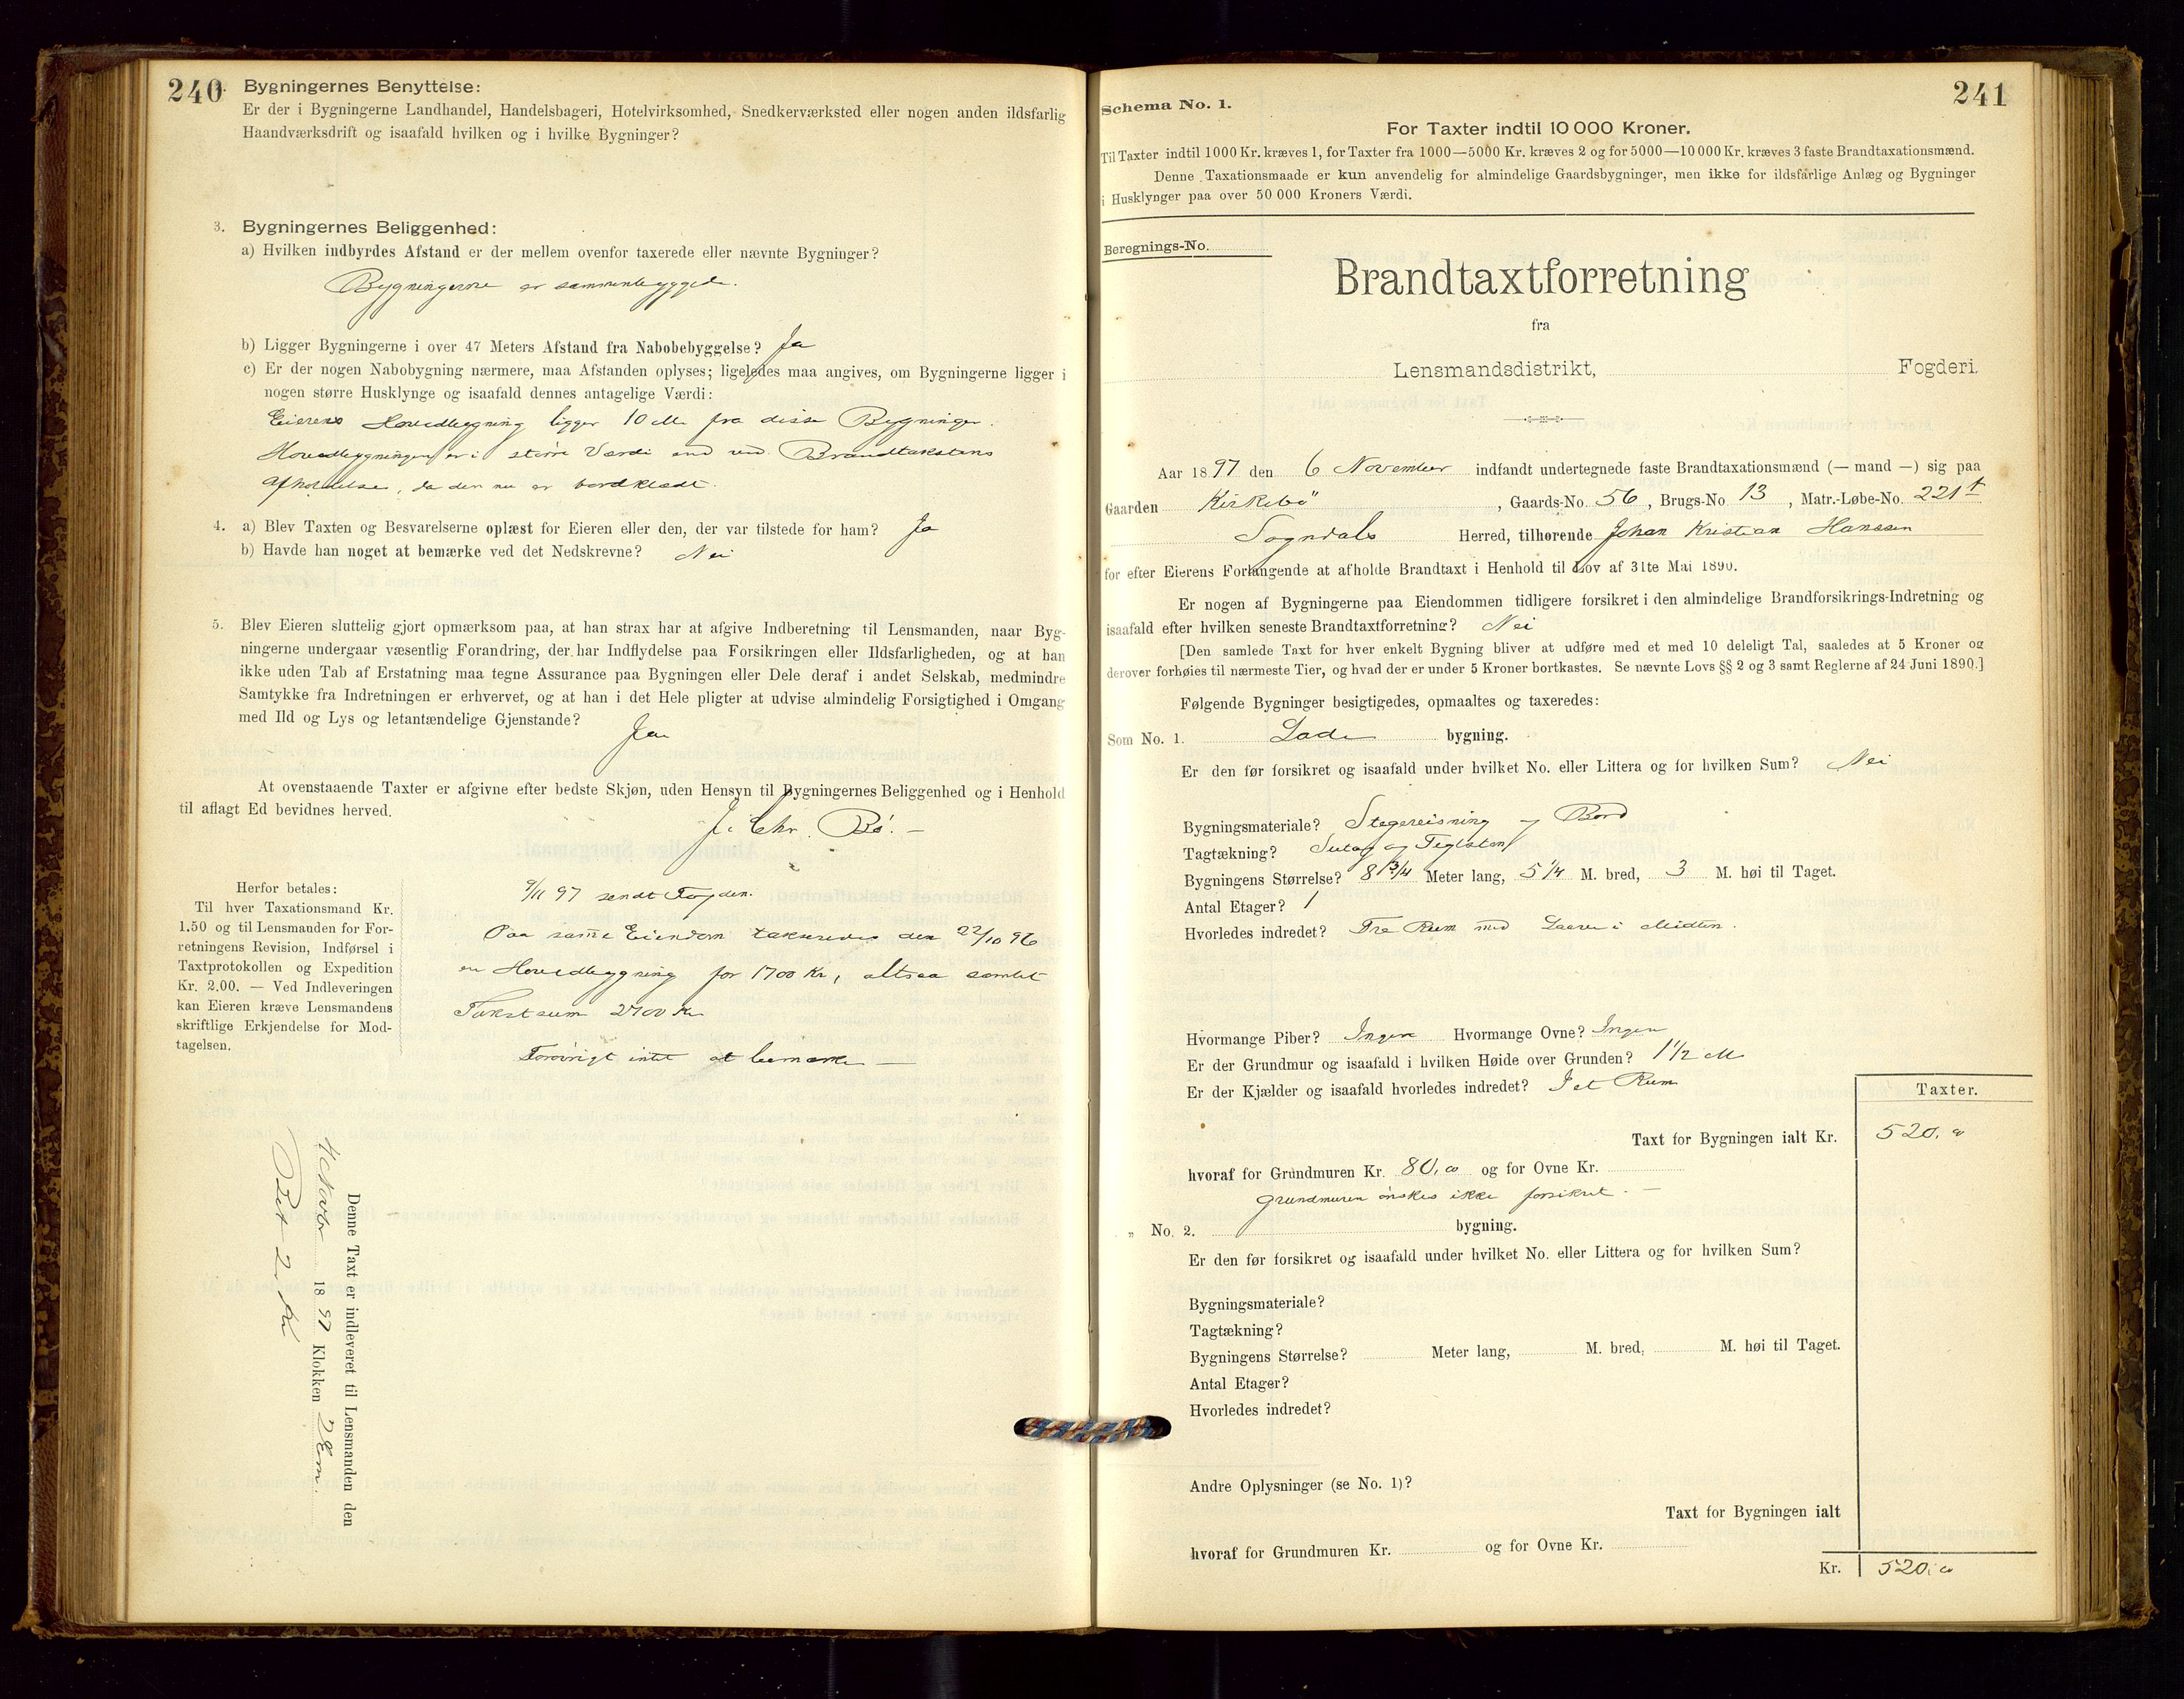 240
Bygningernes Benyttelse:
Er der i Bygningerne Landhandel, Handelsbageri, Hotelvirksomhed, Snedkerværksted eller nogen anden ildsfarlig
Haandværksdrift og isaafald hvilken og i hvilke Bygninger?
3. Bygningernes Beliggenhed:
a) Hvilken indbyrdes Afstand er der mellem ovenfor taxerede eller nævnte Bygninger?
Bygningerne er sammenbyggede.
b) Ligger Bygningerne i over 47 Meters Afstand fra Nabobebyggelse? Ja
c) Er der nogen Nabobygning nærmere, maa Afstanden oplyses; ligeledes maa angives, om Bygningerne ligger i
nogen større Husklynge og isaafald dennes antagelige Værdi:
Eierens Hovedbygning ligger 10 M. fra disse Bygninger.
Hovedbygningen er i större Værdi end ved Brandtakstens
afholdelse, da den nu er bordklædt.
4. a) Blev Taxten og Besvarelserne oplæst for Eieren eller den, der var tilstede for ham? Ja
b) Havde han noget at bemærke ved det Nedskrevne? Nei
5. Blev Eieren sluttelig gjort opmærksom paa, at han strax har at afgive Indberetning til Lensmanden, naar Byg-
ningerne undergaar væsentlig Forandring, der har Indflydelse paa Forsikringen eller Ildsfarligheden, og at han
ikke uden Tab af Erstatning maa tegne Assurance paa Bygningen eller Dele deraf i andet Selskab, medmindre
Samtykke fra Indretningen er erhvervet, og at han i det Hele pligter at udvise almindelig Forsigtighed i Omgang
med Ild og Lys og letantændelige Gjenstande?
Ja
At ovenstaaende Taxter er afgivne efter bedste Skjøn, uden Hensyn til Bygningernes Beliggenhed og i Henhold
til aflagt Ed bevidnes herved.
J. Chr. Bö. —
Herfor betales:
Til hver Taxationsmand Kr.
1.50 og til Lensmanden for For-
retningens Revision, Indførsel i
Taxtprotokollen og Expedition
Kr. 2.00. — Ved Indleveringen
kan Eieren kræve Lensmandens
skriftlige Erkjendelse for Mod-
tagelsen.
9/11 97 sendt Fogden.
Paa samme Eiendom takseredes den 22/10 96
en Hovedbygning for 1700 Kr, altsaa samlet
Takstsum 2700 Kr
Forövrigt intet at bemærke —
Denne Taxt er indleveret til Lensmanden den
18 97 Klokken 2 Em.
Bet 2 Kr
Schema No. 1.
241
For Taxter indtil 10 000 Kroner.
Til Taxter indtil 1000 Kr. kræves 1, for Taxter fra 1000—5000 Kr. kræves 2 og for 5000—10 000 Kr. kræves 3 faste Brandtaxationsmænd.
Denne Taxationsmaade er kun anvendelig for almindelige Gaardsbygninger, men ikke for ildsfarlige Anlæg og Bygninger
i Husklynger paa over 50 000 Kroners Værdi.
Beregnings-No.
Brandtaxtforretning
fra
Lensmandsdistrikt, Fogderi.
Aar 1897 den 6 November indfandt undertegnede faste Brandtaxationsmænd (— mand —) sig paa
Gaarden Kirkebö, Gaards-No. 56, Brugs-No 13, Matr.-Løbe-No. 221
Sogndals Herred, tilhørende Johan Kristian Hanssen
for efter Eierens Forlangende at afholde Brandtaxt i Henhold til Lov af 31te Mai 1890.
Er nogen af Bygningerne paa Eiendommen tidligere forsikret i den almindelige Brandforsikrings-Indretning og
isaafald efter hvilken seneste Brandtaxtforretning? Nei
[Den samlede Taxt for hver enkelt Bygning bliver at udføre med et med 10 deleligt Tal, saaledes at 5 Kroner og
derover forhøies til nærmeste Tier, og hvad der er under 5 Kroner bortkastes. Se nævnte Lovs §§ 2 og 3 samt Reglerne af 24 Juni 1890.]
Følgende Bygninger besigtigedes, opmaaltes og taxeredes:
Som No. 1. Lade bygning.
Er den før forsikret og isaafald under hvilket No. eller Littera og for hvilken Sum? Nei
Bygningsmateriale? Stegereisning og Bord
Tagtækning? Sutag og Teglsten
Bygningens Størrelse? 8 3/4 Meter lang, 5 1/4 M. bred, 3 M. høi til Taget.
Antal Etager? 1
Hvorledes indredet? Tre Rum med Laave i Midten.
Hvormange Piber? Ingen Hvormange Ovne? Ingen
Er der Grundmur og isaafald i hvilken Høide over Grunden? 1 1/2 M
Er der Kjælder og isaafald hvorledes indredet? I et Rum
Taxter.
Taxt for Bygningen ialt Kr. 520,00
hvoraf for Grundmuren Kr. 80,00 og for Ovne Kr.
Grundmuren önskes ikke forsikret. —
„ No. 2. bygning.
Er den før forsikret og isaafald under hvilket No. eller Littera og for hvilken Sum?
Bygningsmateriale?
Tagtækning?
Bygningens Størrelse? Meter lang, M. bred, M. høi til Taget.
Antal Etager?
Hvorledes indredet?
Andre Oplysninger (se No. 1)?
Taxt for Bygningen ialt
hvoraf for Grundmuren Kr. og for Ovne Kr.
Kr. 520,00